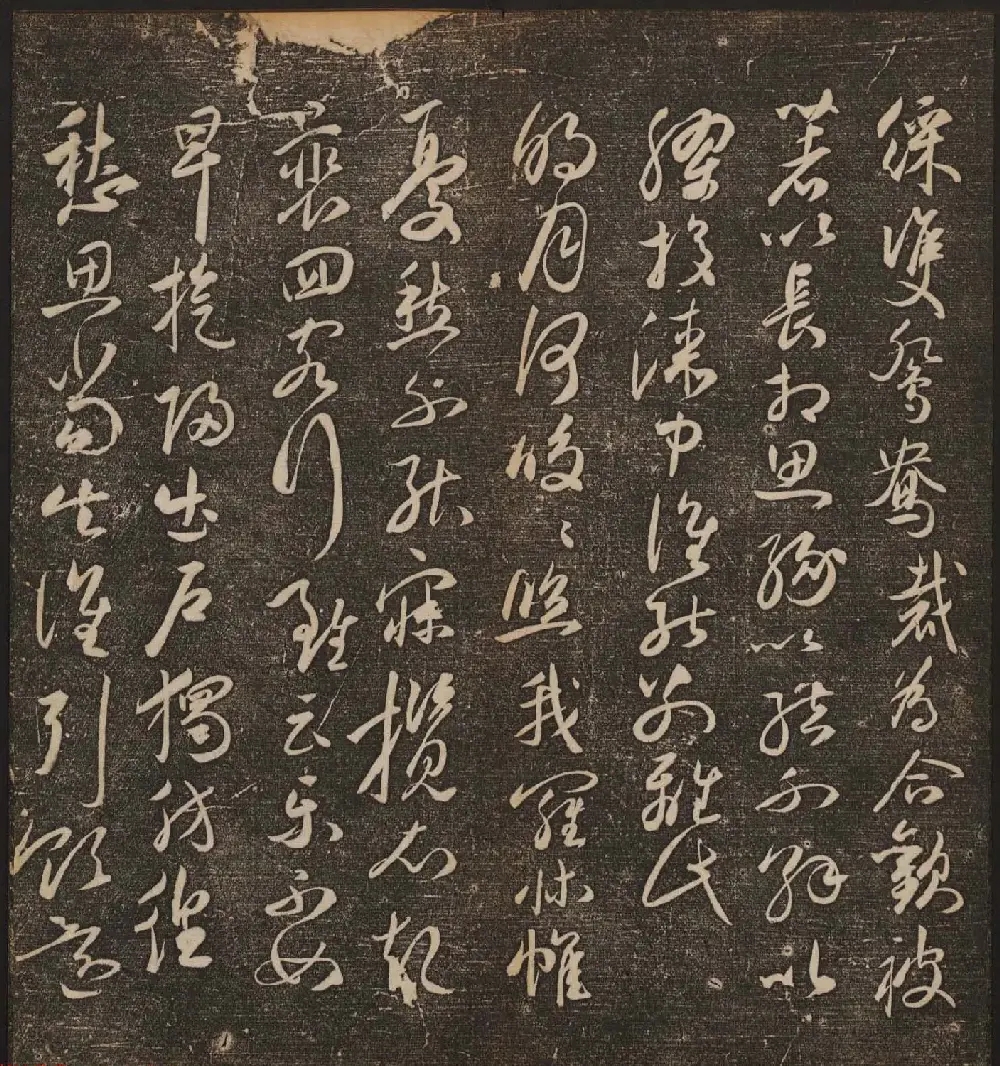 綵雙鴛鴦裁為合歡被
著以長相思緣以結不解以
膠投漆中誰能別離此
明月何皎〻照我羅床幃
憂愁不能寐攬衣起
裵回客行雖云樂不如
早旋歸出戶獨彷徨
愁思當告誰引領還